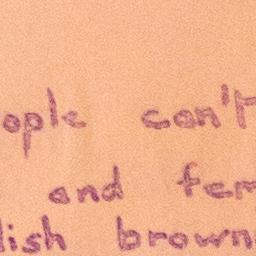 ople can't
and fem
lish brown